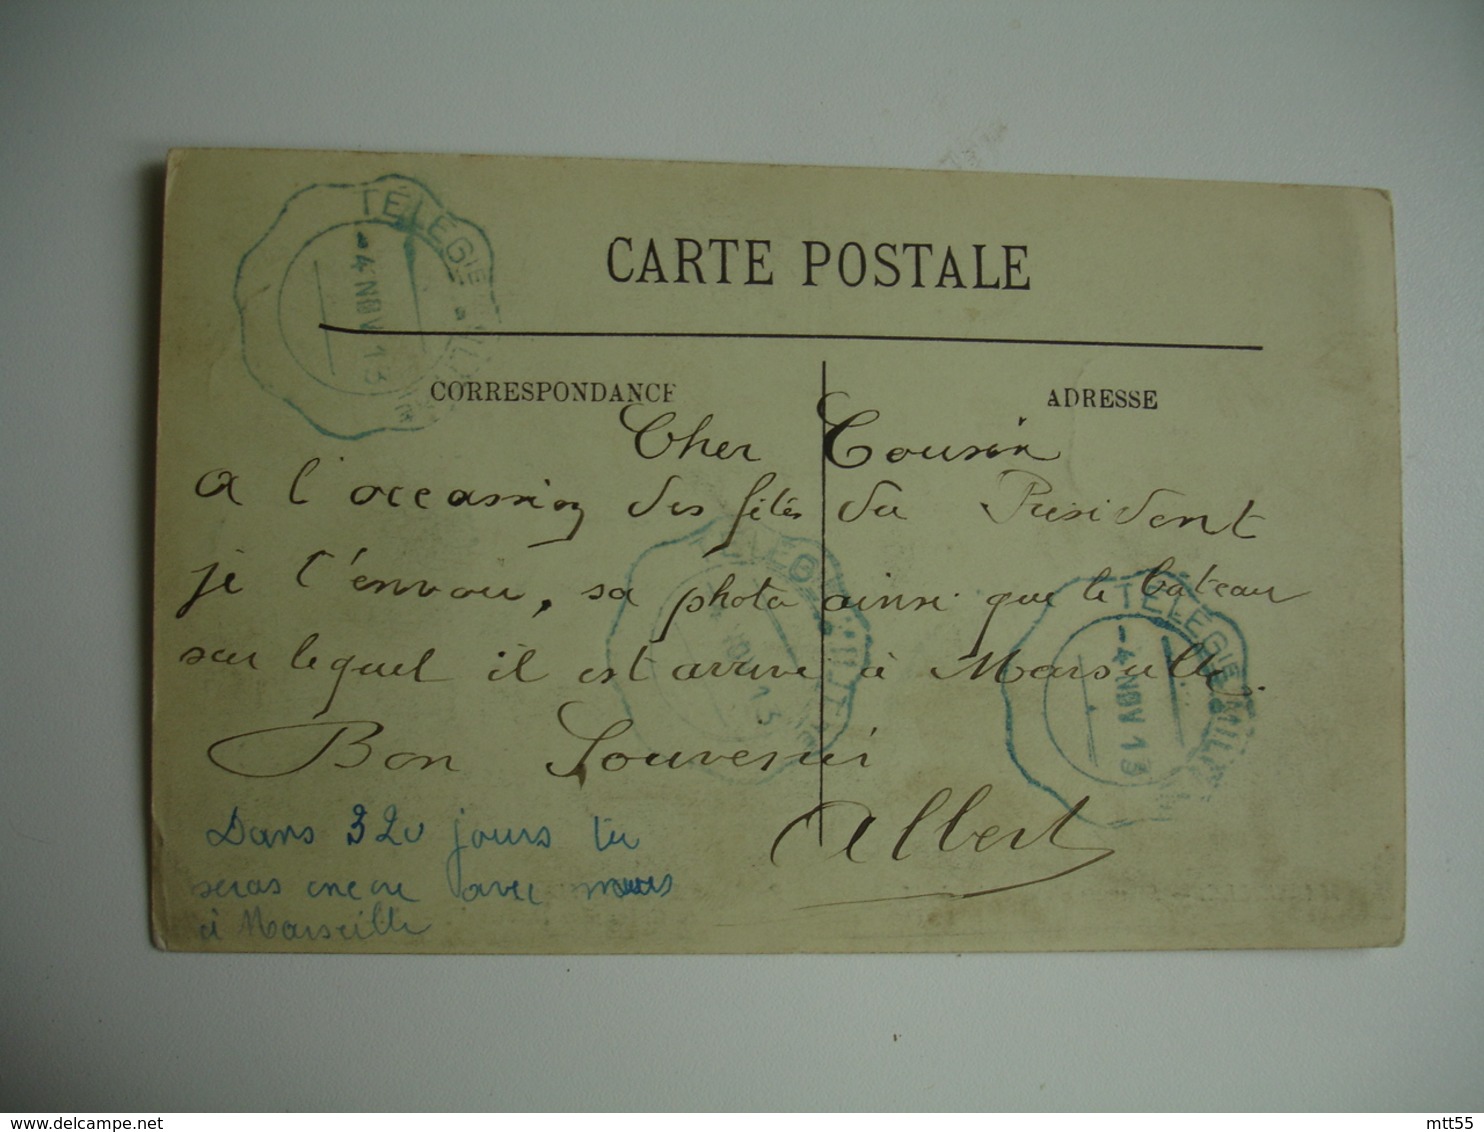 CARTE POSTALE
CORRESPONDANCE
ADRESSE
TELEGIE MILIT
-4 NOV 13
Cher Cousin
A l'occassion des fêtes du Président
je t'envoie, sa photo ainsi que le bateau
sur lequel il est arrivé à Marseille.
Bon Souvenir
Albert
Dans 320 jours tu
seras encore avec nous
à Marseille
TELEGIE MILIT
4 NOV 13
TELEGIE MILIT
-4 NOV 13
mtt55